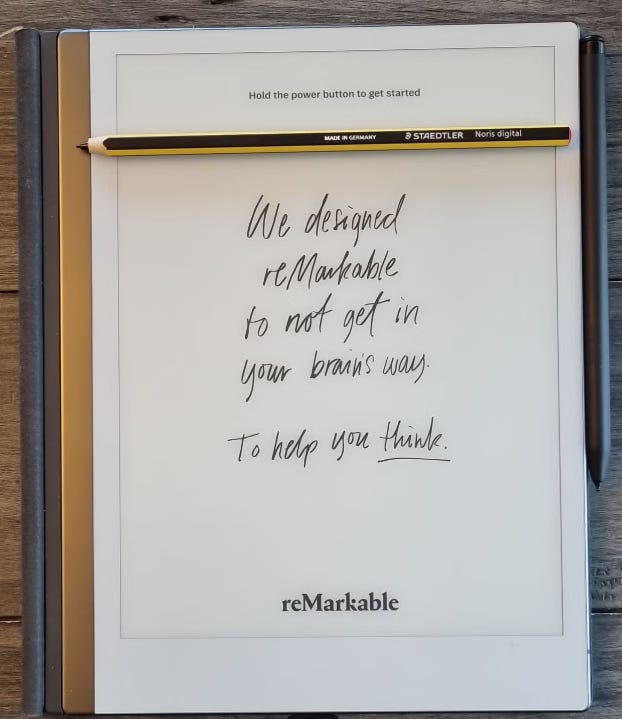 Hold the power button to get started
MADE IN GERMANY STAEDTLER Noris digital
We designed
reMarkable
to not get in
your brain's way.
To help you think.
reMarkable